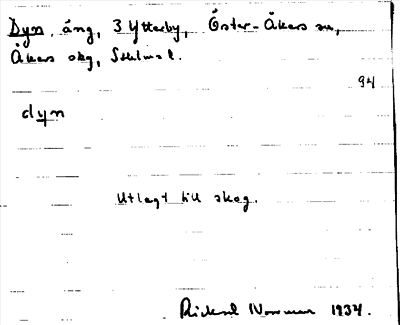 Dyn, äng, 3 Ytterby, Öster-Åkers sn,
Åkers skg, Sthlms l.
94
dyn
Utlagt till skog.
Rickard 1934.